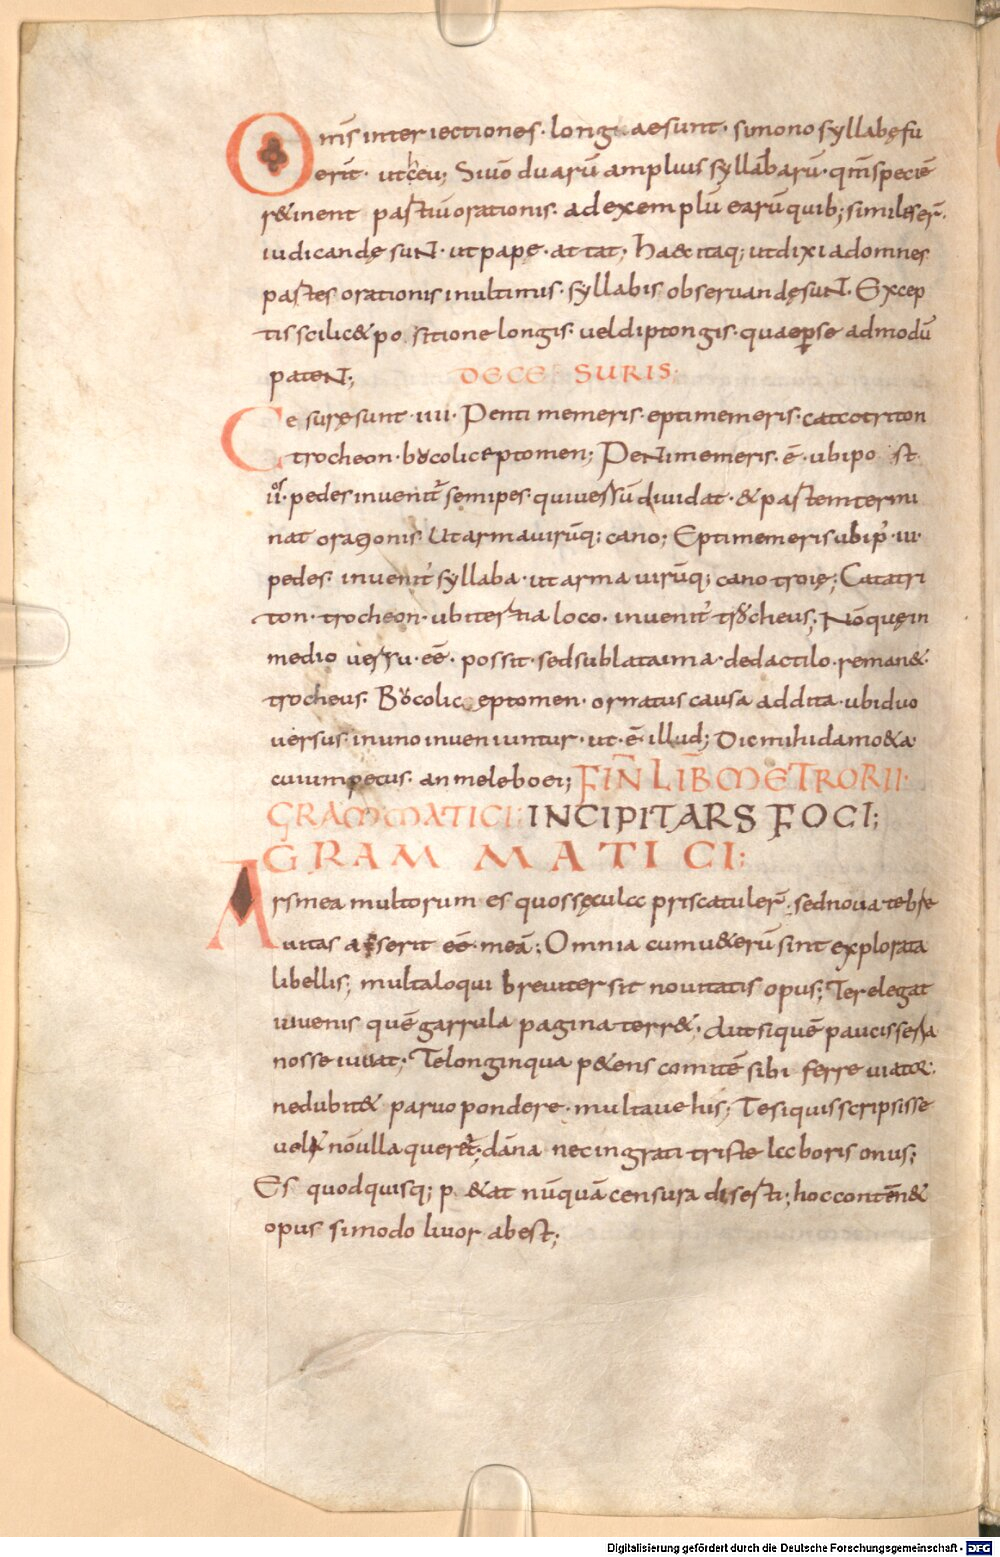 Omīs interiectiones· longae sunt· si monosyllabę fu
erīt· ut heu; Siuē duarū ampliuis syllabarū· qm̄ speciē
r&inent partiū orationis· ad exemplū earū quib; similes er̄·
iudicandę suN̄· ut papę· at tat; Haec itaq; ut dixi ad omnes
partes orationis in ultimis· syllabis obseruandę suN̄· Excep
tis scilic& positione longis· uel diptongis· quae ꝑse admodū
pateN̄;
DE CESURIS·
Cesurę sunt· IIII· Penti memeris· eptimemeris· catcotriton
trocheon· bucolic eptomen; PeNtimemeris· ē· ubi post
ii͛· pedes inuenit̄ semipes· qui uersū diuidat· & partem termi
nat orationis· Ut arma uirūq; cano; Eptimemeris ubi p̄· III·
pedes· inuenit̄ syllaba· ut arma uirūq; cano troię; Catatri
ton· trocheon· ubi tertia loco· inuenit̄ trocheus; Nō quę in
medio uersu· eē· possit· sed sublata ima· de dactilo· reman&·
trocheus· Bucolic eptomen· ornatus causa addita· ubi duo
uersus· in uno inueniuntur· ut· ē· illud; Dic mihi damo&a
cuium pecus· an meleboei; FIN̄ LIB̄ METRORII·
GRAMMATICI: INCIPIT ARS FOCI;
GRAMMATICI:
Ars mea multorum es quos sęcula prisca tuler̄· sed noua te bre
uitas asserit eē· meā; Omnia cum u&erū sint explorata
libellis; multa loqui breuiter sit nouitatis opus; Te relegat
iuuenis quē garrula pagina terr&· Aut siquē paucis seria
nosse iuuat· Te longinqua p&ens comitē sibi ferre uiator·
ne dubit& paruo pondere· multa uehis; Te siquis scripsisse
uel& nō ulla queret̄; dāna nec ingrati triste laboris onus;
Es quod quisq; p&at nūquā censura diserti; hoc contēn&
opus si modo liuor abest;
Digitalisierung gefördert durch die Deutsche Forschungsgemeinschaft - DFG